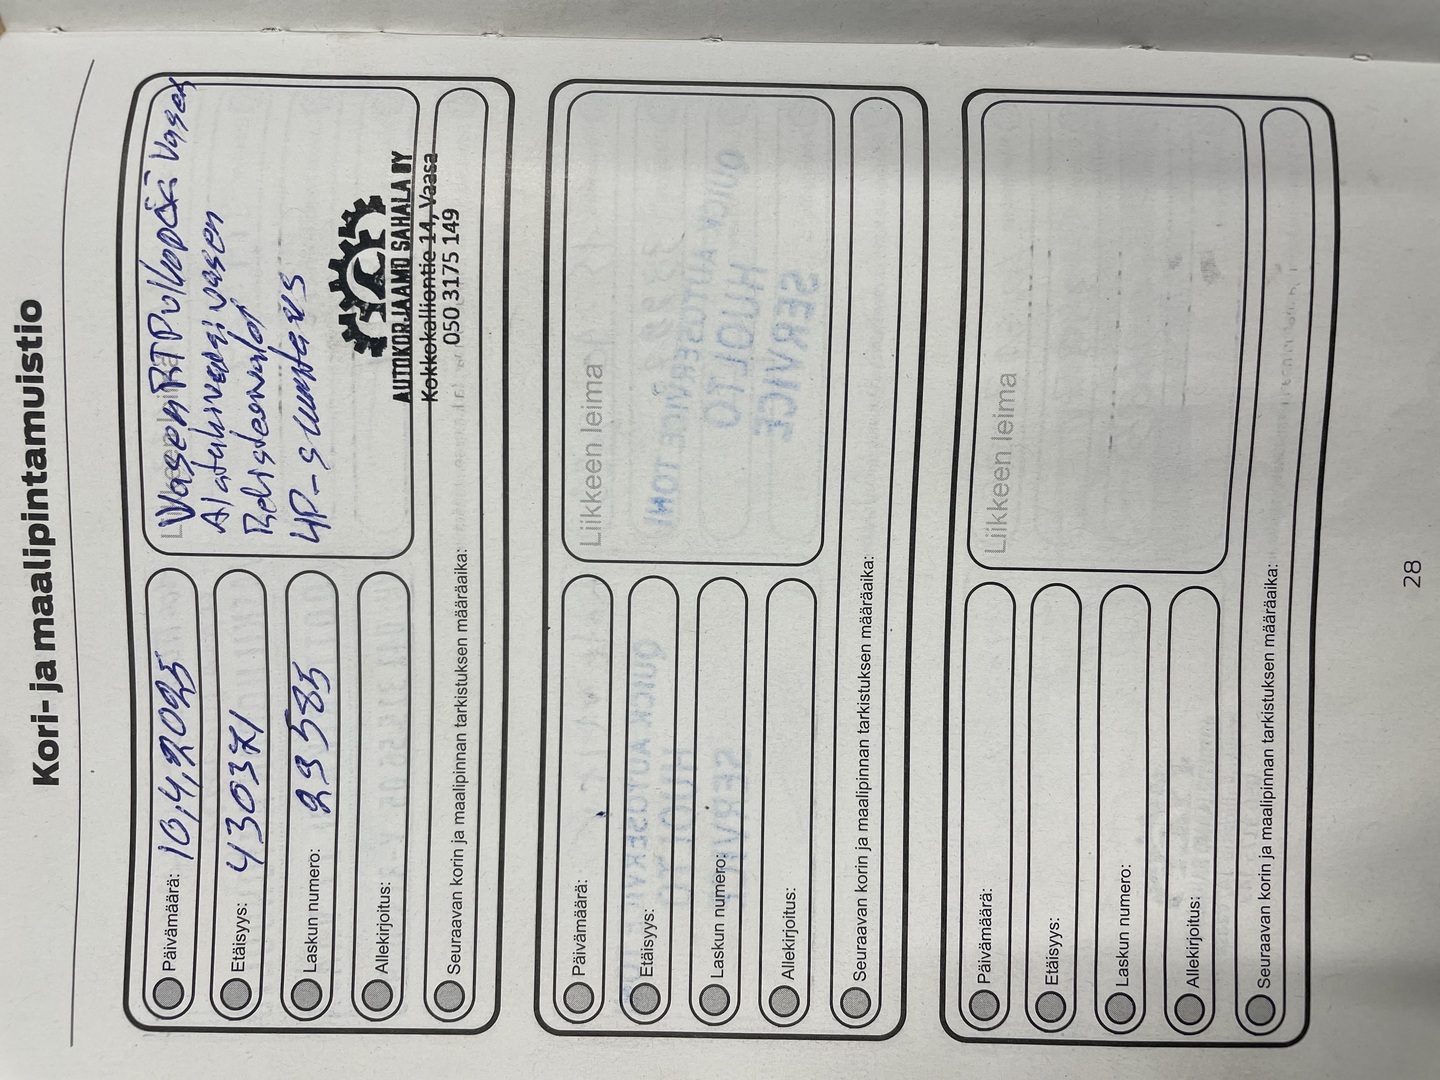 Kori- ja maalipintamuistio
Päivämäärä: 10,4,2025
Etäisyys: 430371
Laskun numero: 29585
Allekirjoitus:
Seuraavan korin ja maalipinnan tarkistuksen määräaika:
Vasen RT Pallopää Vasen
Alatukivarsi vasen
4P-suuntaus
AUTOKORJAAMO SAHALA OY
Kokkokalliontie 14, Vaasa
050 3175 149
Päivämäärä:
Etäisyys:
Laskun numero:
Allekirjoitus:
Seuraavan korin ja maalipinnan tarkistuksen määräaika:
Liikkeen leima
Päivämäärä:
Etäisyys:
Laskun numero:
Allekirjoitus:
Seuraavan korin ja maalipinnan tarkistuksen määräaika:
Liikkeen leima
28